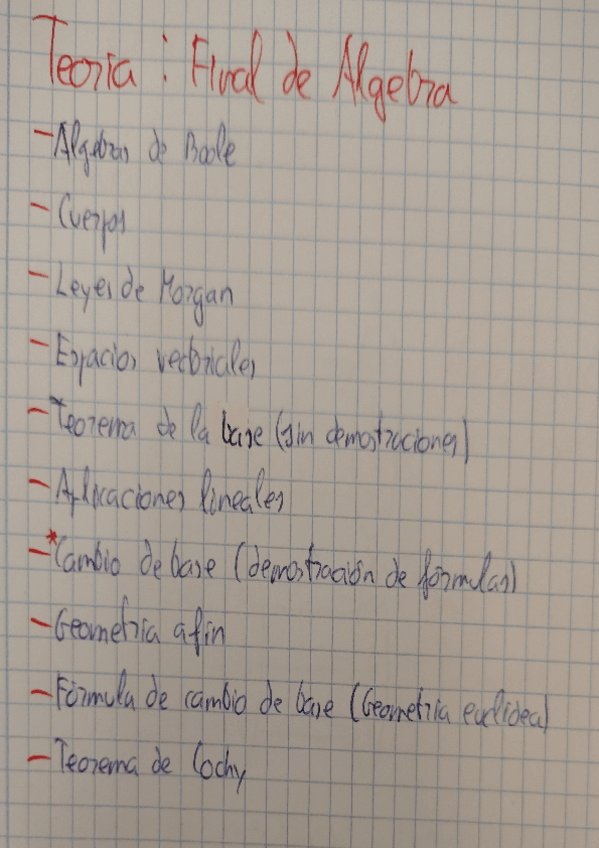 Teoria : Final de Algebra
- Algebras de Boole
- Cuerpos
- Leyes de Morgan
- Espacios vectoriales
- Teorema de la base (sin demostraciones)
- Aplicaciones lineales
-* Cambio de base (demostración de fórmulas)
- Geometria afin
- Fórmula de cambio de base (Geometria euclidea)
- Teorema de Cochy